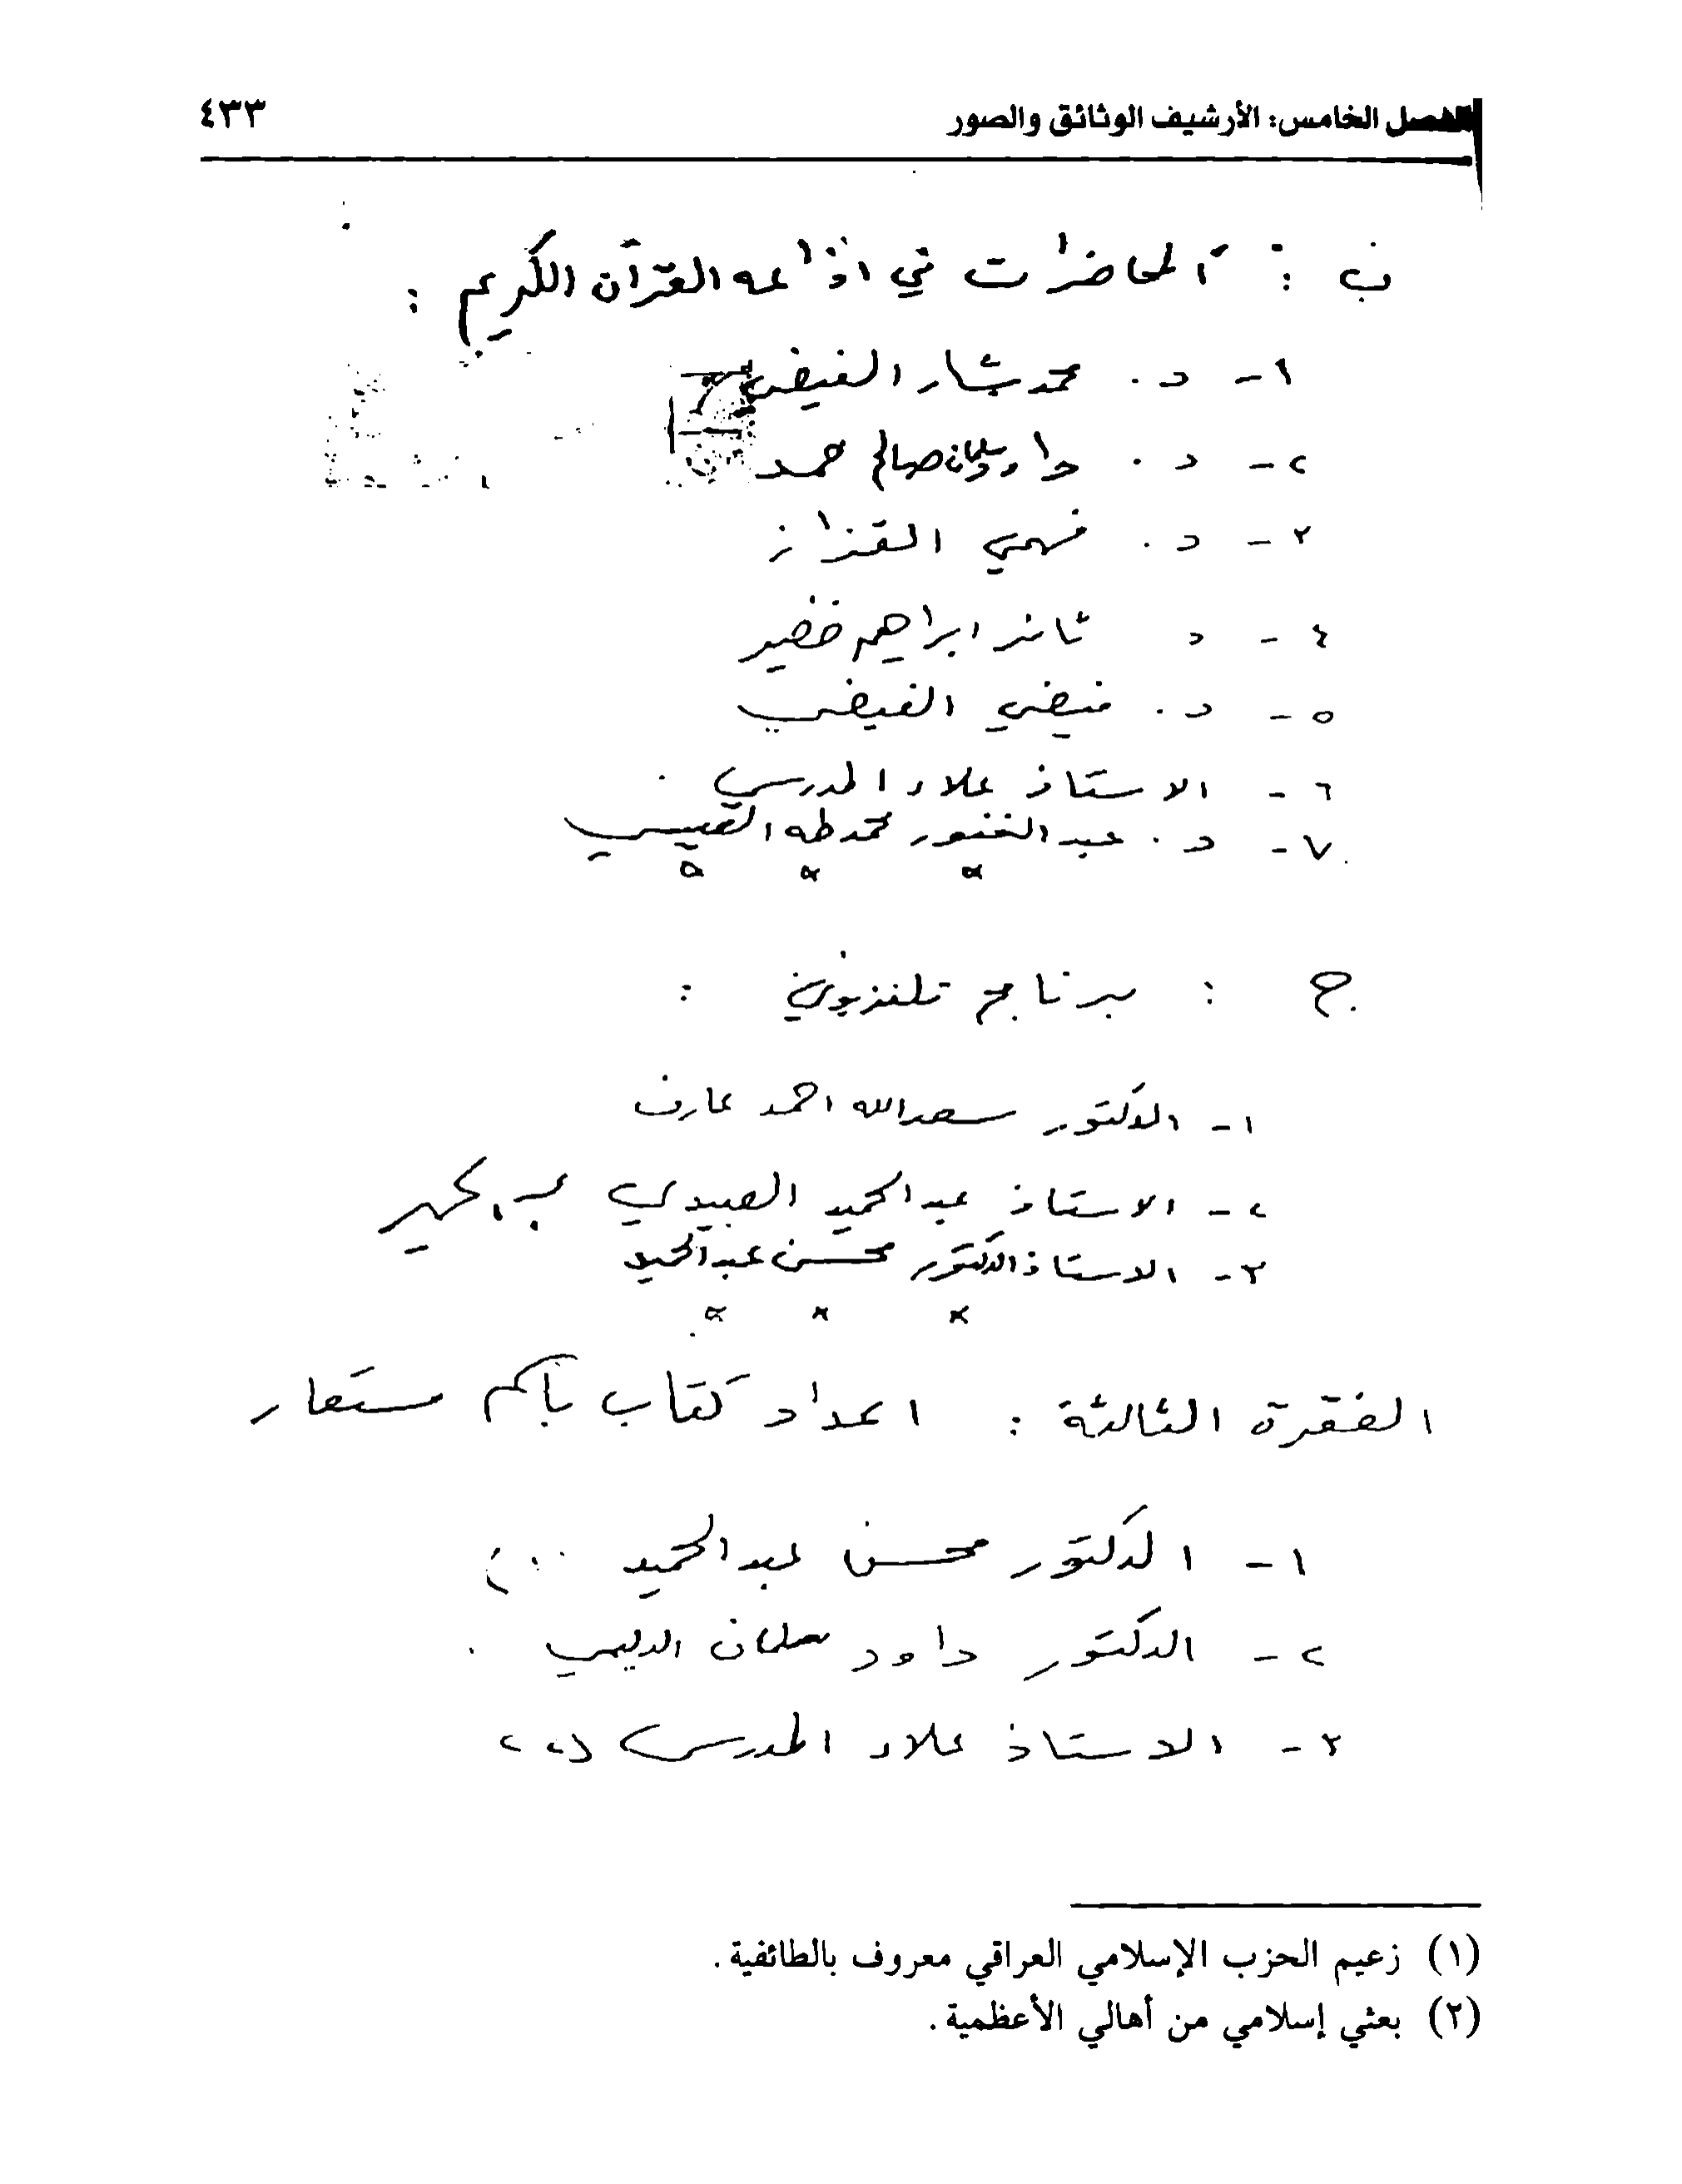 الفصل الخامس: الأرشيف الوثائق والصور ٤٣٣
ب : المحاضرات في اذاعه القرآن الكريم :
١ - د . محمد بشار الفيضي
٢ - د . داود سلمان صالح حمد
٣ - د . فهمي القزاز
٤ - د ثائر ابراهيم خضير
٥ - د . فيضي الفيضي
٦ - الاستاذ علاء المدرسي .
٧ - د . عبد الغفور محمد طه القيسي
ج : برنامج تلفزيوني :
١ - الدكتور سعدالله احمد عارف
٢ - الاستاذ عبد الحميد العبيدي
٣ - الاستاذ الدكتور محسن عبد الحميد
الفقرة الثالثة : اعداد كتاب بأسم مستعار
١ - الدكتور محسن عبد الحميد (١)
٢ - الدكتور داود سلمان الدليمي .
٣ - الاستاذ علاء المدرس (٢)
(١) زعيم الحزب الإسلامي العراقي معروف بالطائفية .
(٢) بعثي إسلامي من أهالي الأعظمية .